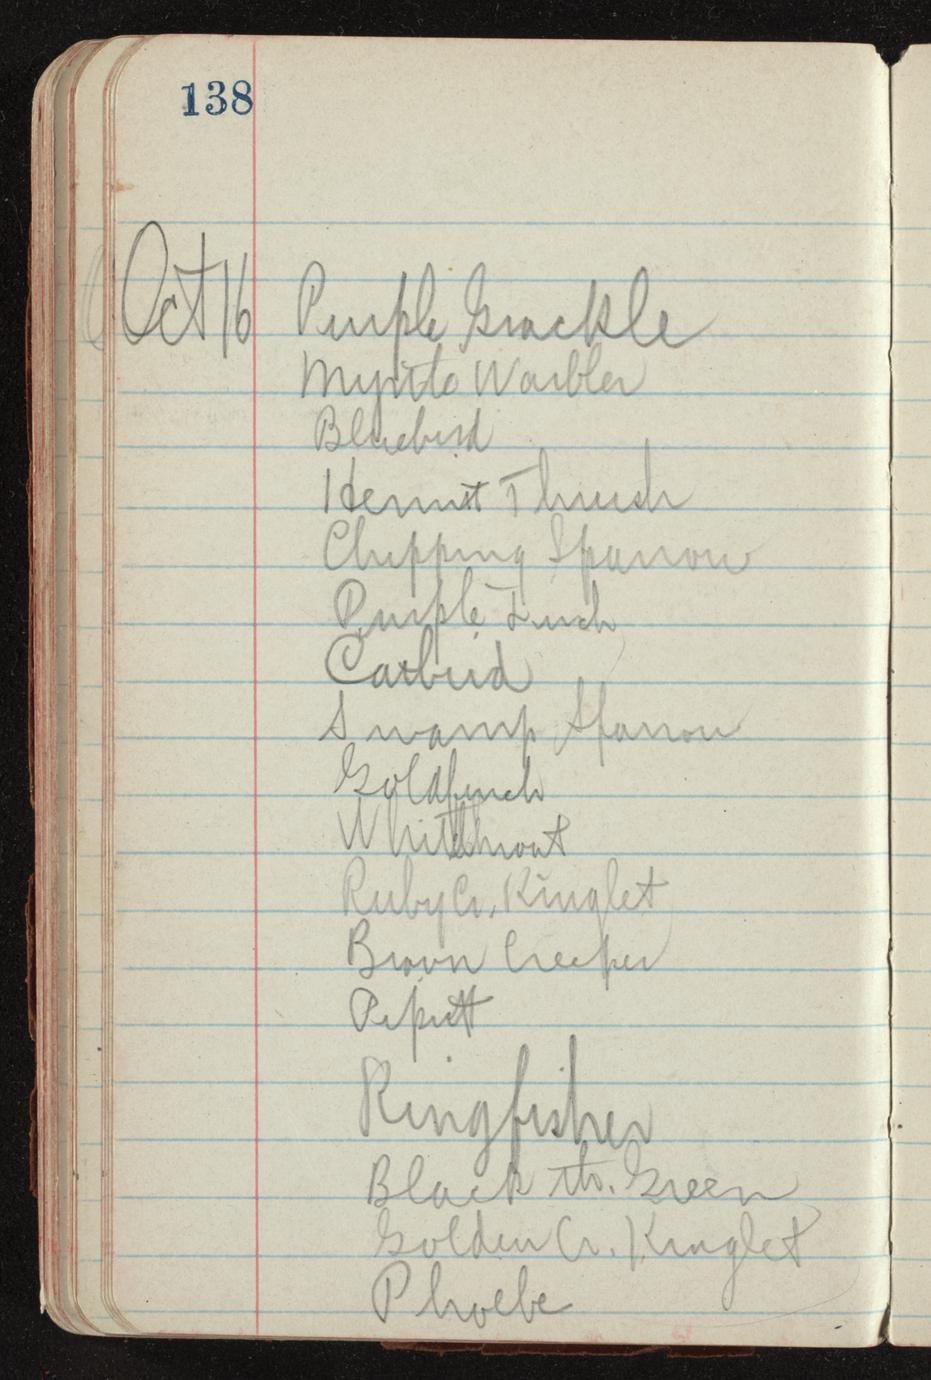 138
Oct 16 Purple Grackle
Myrtle Warbler
Bluebird
Hermit Thrush
Chipping Sparrow
Purple Finch
Catbird
Swamp Sparrow
Goldfinch
Whitethroat
Ruby Cr. Kinglet
Brown Creeper
Pipitt
Kingfisher
Black th. Green
Golden Cr. Kinglet
Phoebe